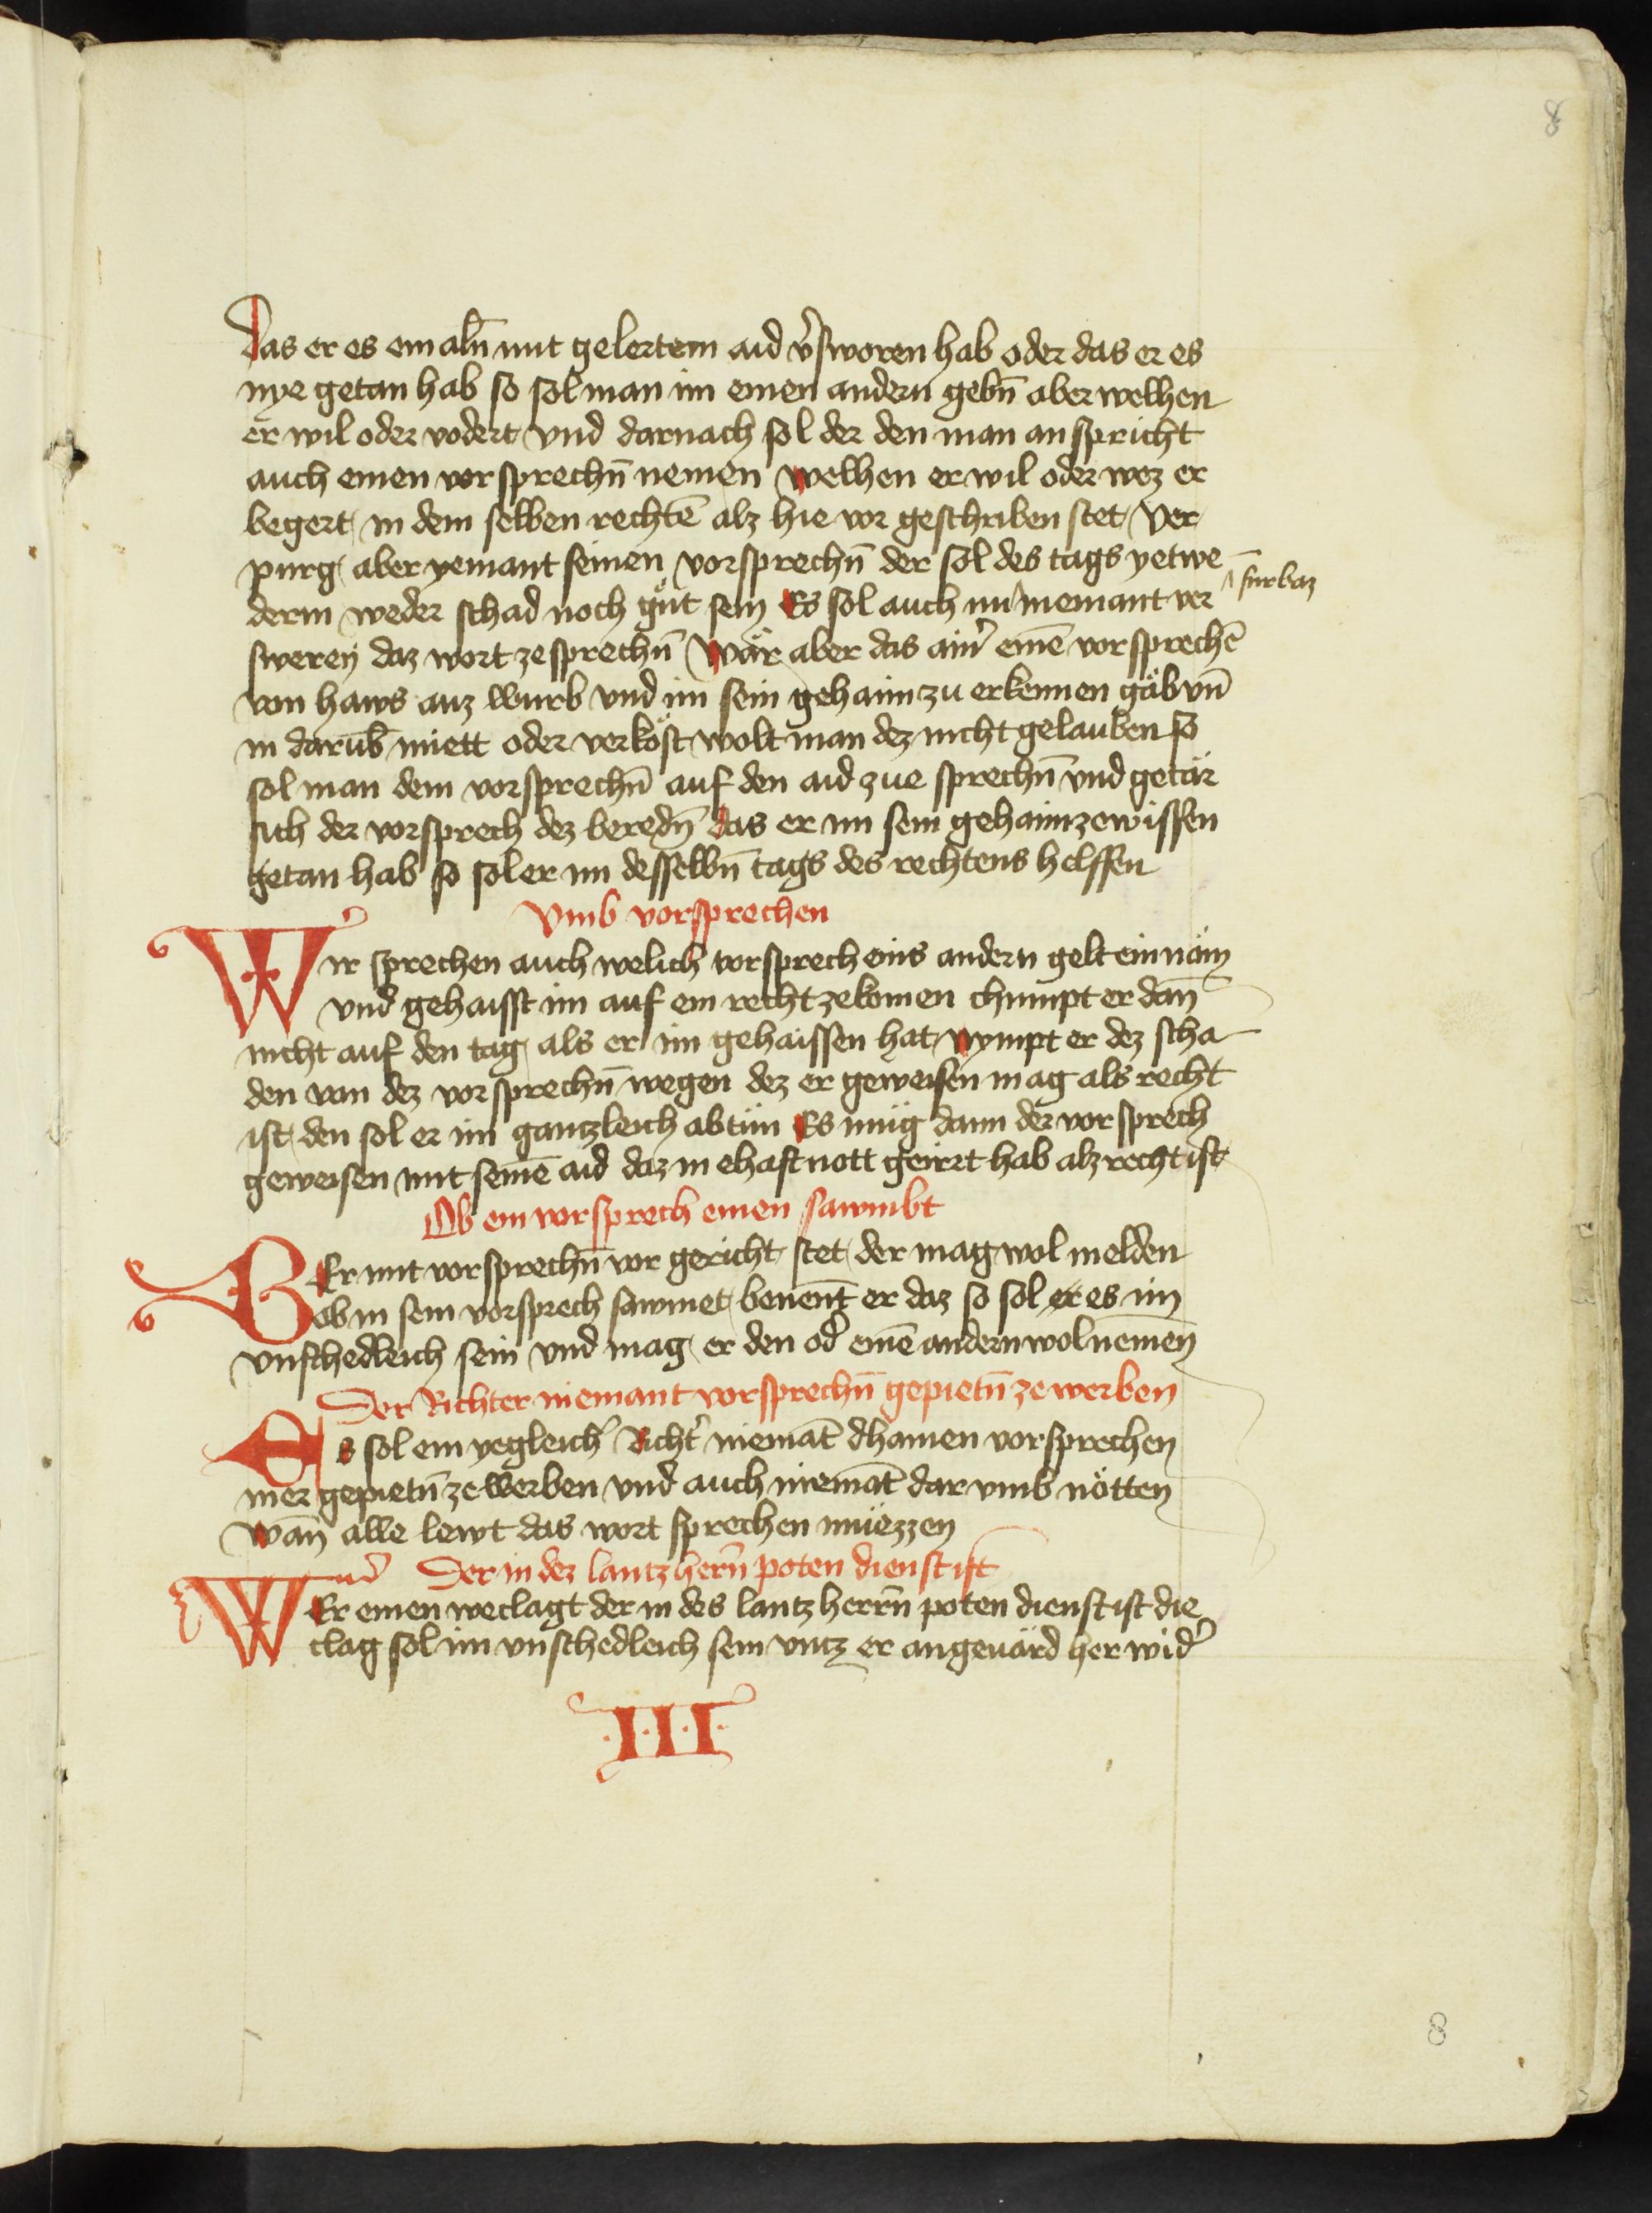 8
Das er es em aln̄ mit gelertem aid v̓sworen hab oder das er es
nye getan hab so sol man im einen andern gebn̄ aber welhen
er wil oder vodert vnd darnach sol der den man an spricht
auch einen vorsprechn̄ nemen welhen er wil oder wez er
begert in dem selben rechtē alz hie vor geschriben stet Ver
purg aber yemant seinen vorsprechn̄ der sol des tags yetwe
derm weder schad noch gůt sein Es sol auch nu niemant ver
furbaz
sweren daz wort ze sprechn̄ Wär aber das ain̓ einē vorsprechē
von haws auz wurb vnd im sein gehaim zu erkennen gäb vn̄
in darūb miett oder verköst wolt man dez nicht gelauben so
sol man dem vorsprechn̄ auf den aid zue sprechn̄ vnd getär
sich der vorsprech dez beredn̄ das er im sein gehaim ze wissen
getan hab so sol er im desselbn̄ tags des rechtens helffen
Vmb vorsprechen
Wir sprechen auch welich vorsprech eins andern gelt ein näm
vnd gehaisst im auf ein recht ze komen chumpt er dan̄
nicht auf den tag als er im gehaissen hat nympt er dez scha
den von dez vorsprechn̄ wegen dez er geweisen mag als recht
ist den sol er im gantzleich ab tün Es müg dann der vorsprech
geweisen mit seinē aid daz in ehaft nott geirrt hab alz recht ist
Ob ein vorsprech einen sawmbt
Er mit vorsprechn̄ vor gericht stet der mag wol melden
ob in sein vorsprech sawmet benent er daz so sol er es im
vnschedleich sein vnd mag er den od̓ einē andern wol nemen
Der Richter niemant vorsprechn̄ gepietn̄ ze werben
Es sol ein yegleich̓ Richt̓ niemāt dhainen vorsprechen
mer gepietn̄ ze werben vnd auch niemāt dar vmb nötten
wan̄ alle lewt das wort sprechen müezzen
Der in dez lantzhern̄ poten dienst ist
WEr einen weclagt der in des lantzherrn̄ poten dienst ist die
clag sol im vnschedleich sein vntz er angeuärd her wid̓
·I·I·I·
8